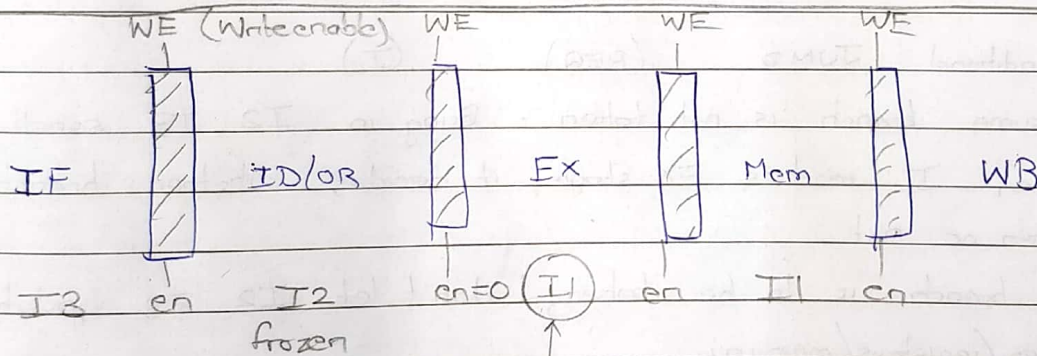 WE (Write enable) WE WE WE
IF ID/OR EX Mem WB
I3 en I2 en=0 I1 en I1 en
frozen